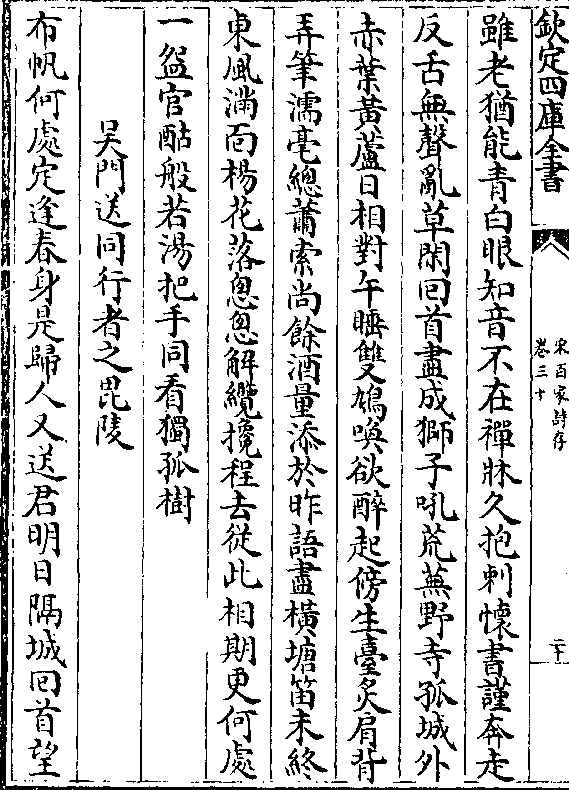 欽定四庫全書
宋百家詩存
卷三十
二十
雖老猶能青白眼知音不在禪牀久抱刺懷書謹奔走
反舌無聲亂草閑回首盡成獅子吼荒蕪野寺孤城外
赤葉黃蘆日相對午睡雙鳩喚欲醉起傍生臺炙肩背
弄筆濡毫總蕭索尚餘酒量添於昨語盡橫塘笛未終
東風滿面楊花落悤悤解纜攙程去從此相期更何處
一盌官酤般若湯把手同看獨孤樹
吴門送同行者之毘陵
布帆何處定逢春身是歸人又送君明日隔城回首望